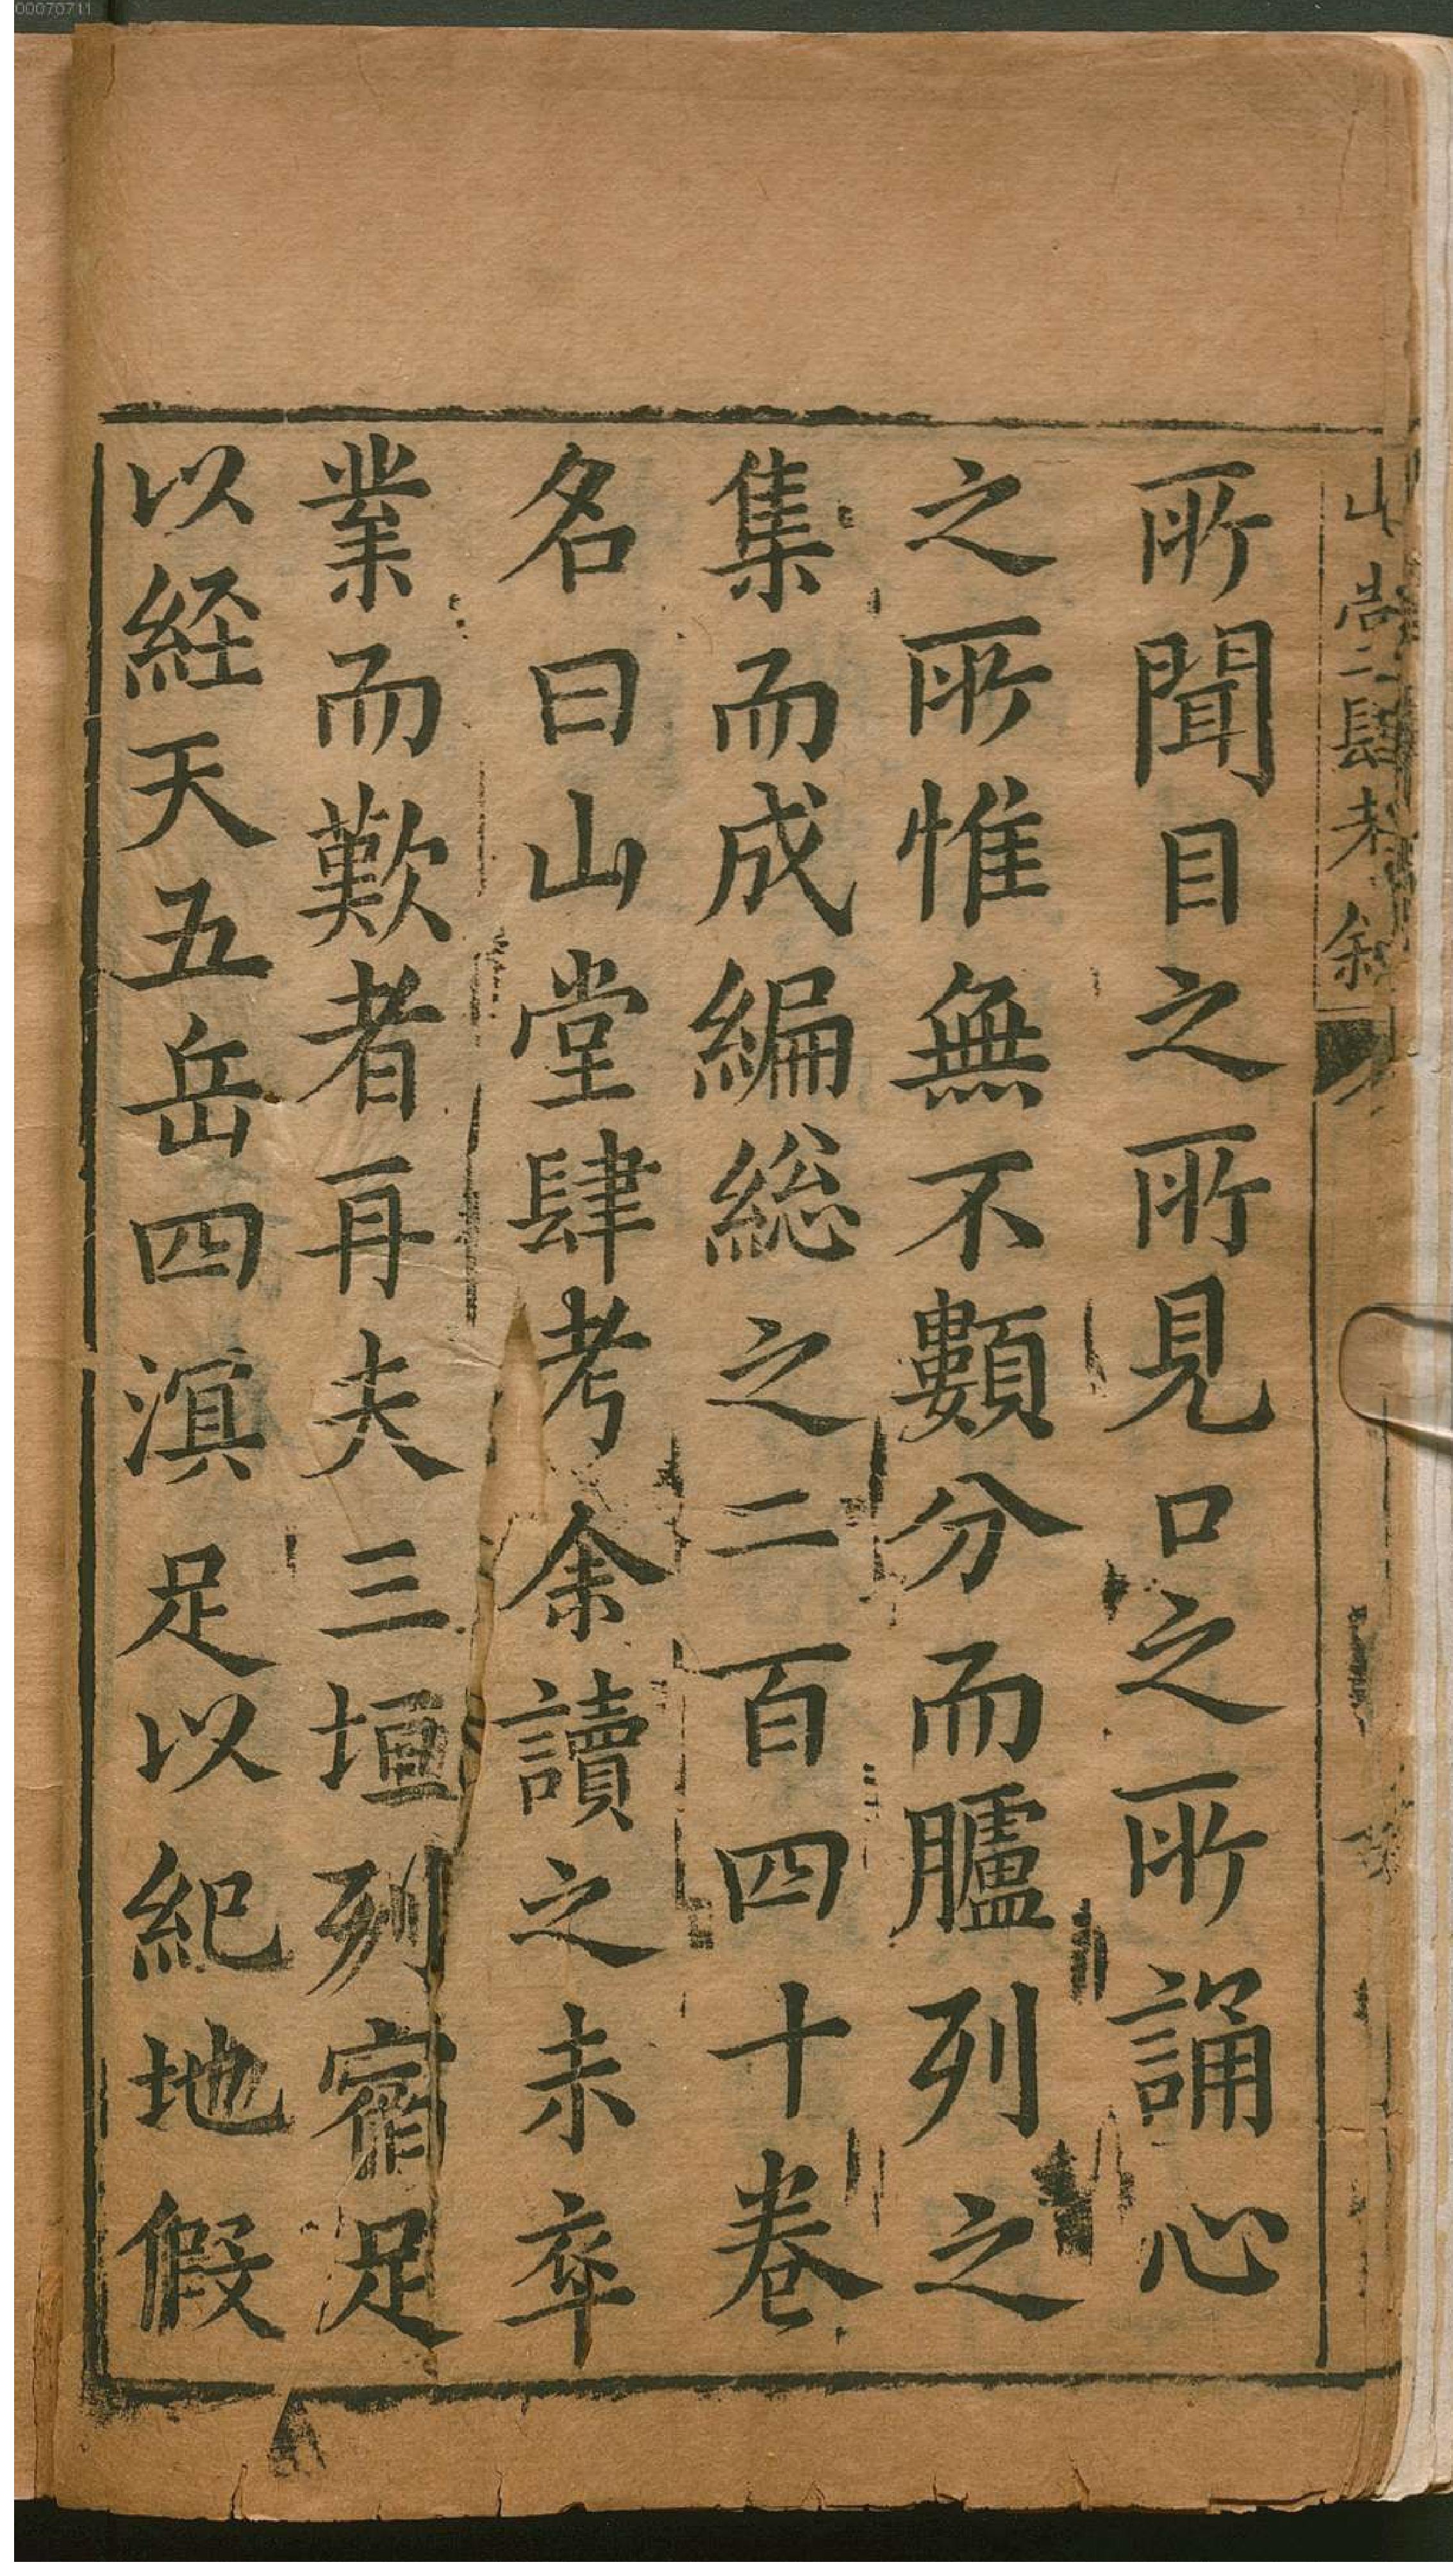 所聞目之所見口之所誦心
之所惟無不類分而臚列之
集而成編総之二百四十卷
名曰山堂肆考余讀之未卒
業而歎者再夫三垣列宿足
以経天五岳四瀆足以紀地假
山堂肆考叙
00070711